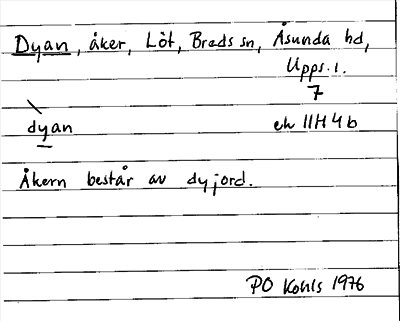 Dyan, åker, Löt, Breds sn, Åsunda hd,
Upps. l.
7
dyan ek 11H4b
Åkern består av dyjord.
PO Kohls 1976